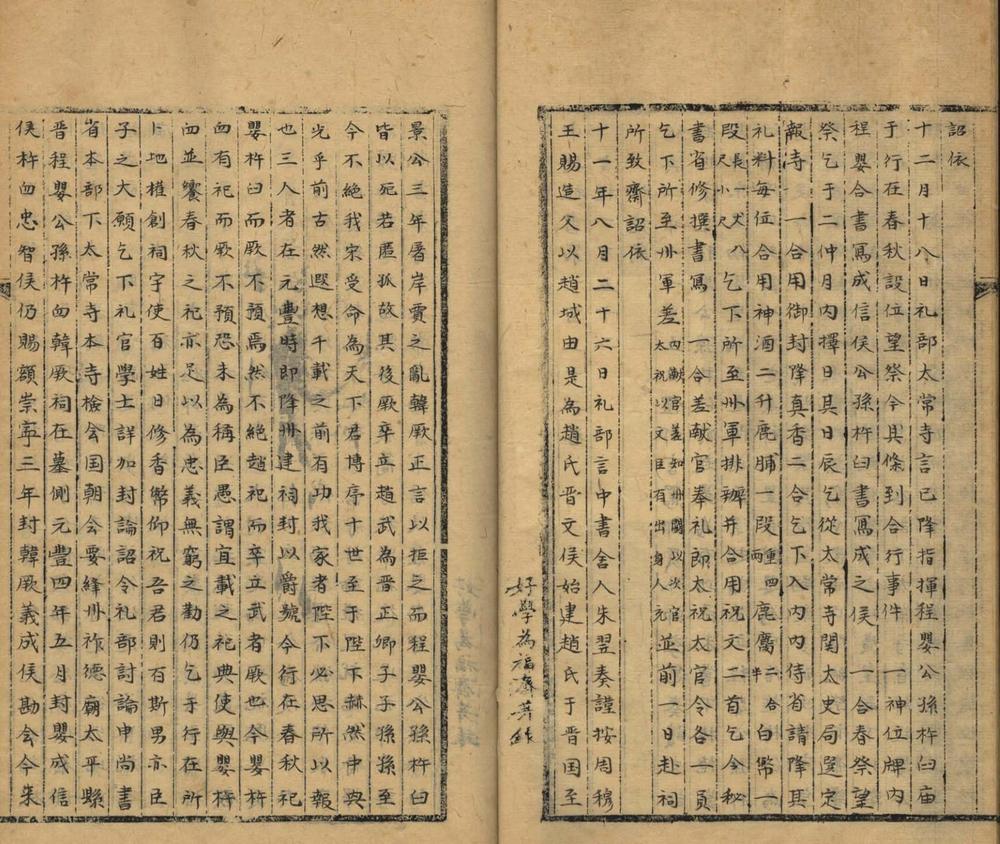 詔依
十二月十八日礼部太常寺言已降指揮程嬰公孫杵臼庙
于行在春秋設位望祭今具條到合行事件一神位牌内
程嬰合書寫成信侯公孫杵臼書寫成之侯一合春祭望
祭乞于二仲月内擇日其日辰乞從太常寺関太史局選定
報寺一合用御封降真香二合乞下入内内侍省請降其
礼料每位合用神酒二升鹿脯一段重四两鹿臡二合半白幣一
段長一丈八尺小尺乞下所至州軍排辦并合用祝文二首乞令秘
書省修撰書寫一合差献官奉礼郎太祝太官令各一員
乞下所至州軍差内献官差如州闕以次官並太祝以文臣有出身人充並前一日赴祠
所致齋詔依
十一年八月二十六日礼部言中書舍人朱翌奏謹按周穆
王賜造父以趙城由是為趙氏晋文侯始建趙氏于晋国至
好學為福齋
景公三年屠岸賈之亂韓厥正言以拒之而程嬰公孫杵臼
皆以死若匿孤故其後厥卒立趙武為晋正卿子子孫孫至
今不絕我宋受命為天下君博序十世至于陛下赫然中興
光乎前古然遐想千載之前有功我家者陛下必思所以報
也三人者在元豊時即降州建祠封以爵號今行在春秋祀
嬰杵臼而厥不預焉然不絕趙祀而卒立武者厥也今嬰杵
臼有祀而厥不預恐未為稱臣愚謂宜載之祀典使與嬰杵
臼並饗春秋之祀亦足以為忠義無窮之勸仍乞于行在所
卜地權創祠宇使百姓日修香幣仰祝吾君則百斯男亦臣
子之大願乞下礼官學士詳加封論詔令礼部討論申尚書
省本部下太常寺本寺檢会国朝会要絳州祚德廟太平縣
晋程嬰公孫杵臼韓厥祠在墓側元豊四年五月封嬰成信
侯杵臼忠智侯仍賜額崇寧三年封韓厥義成侯勘会今来